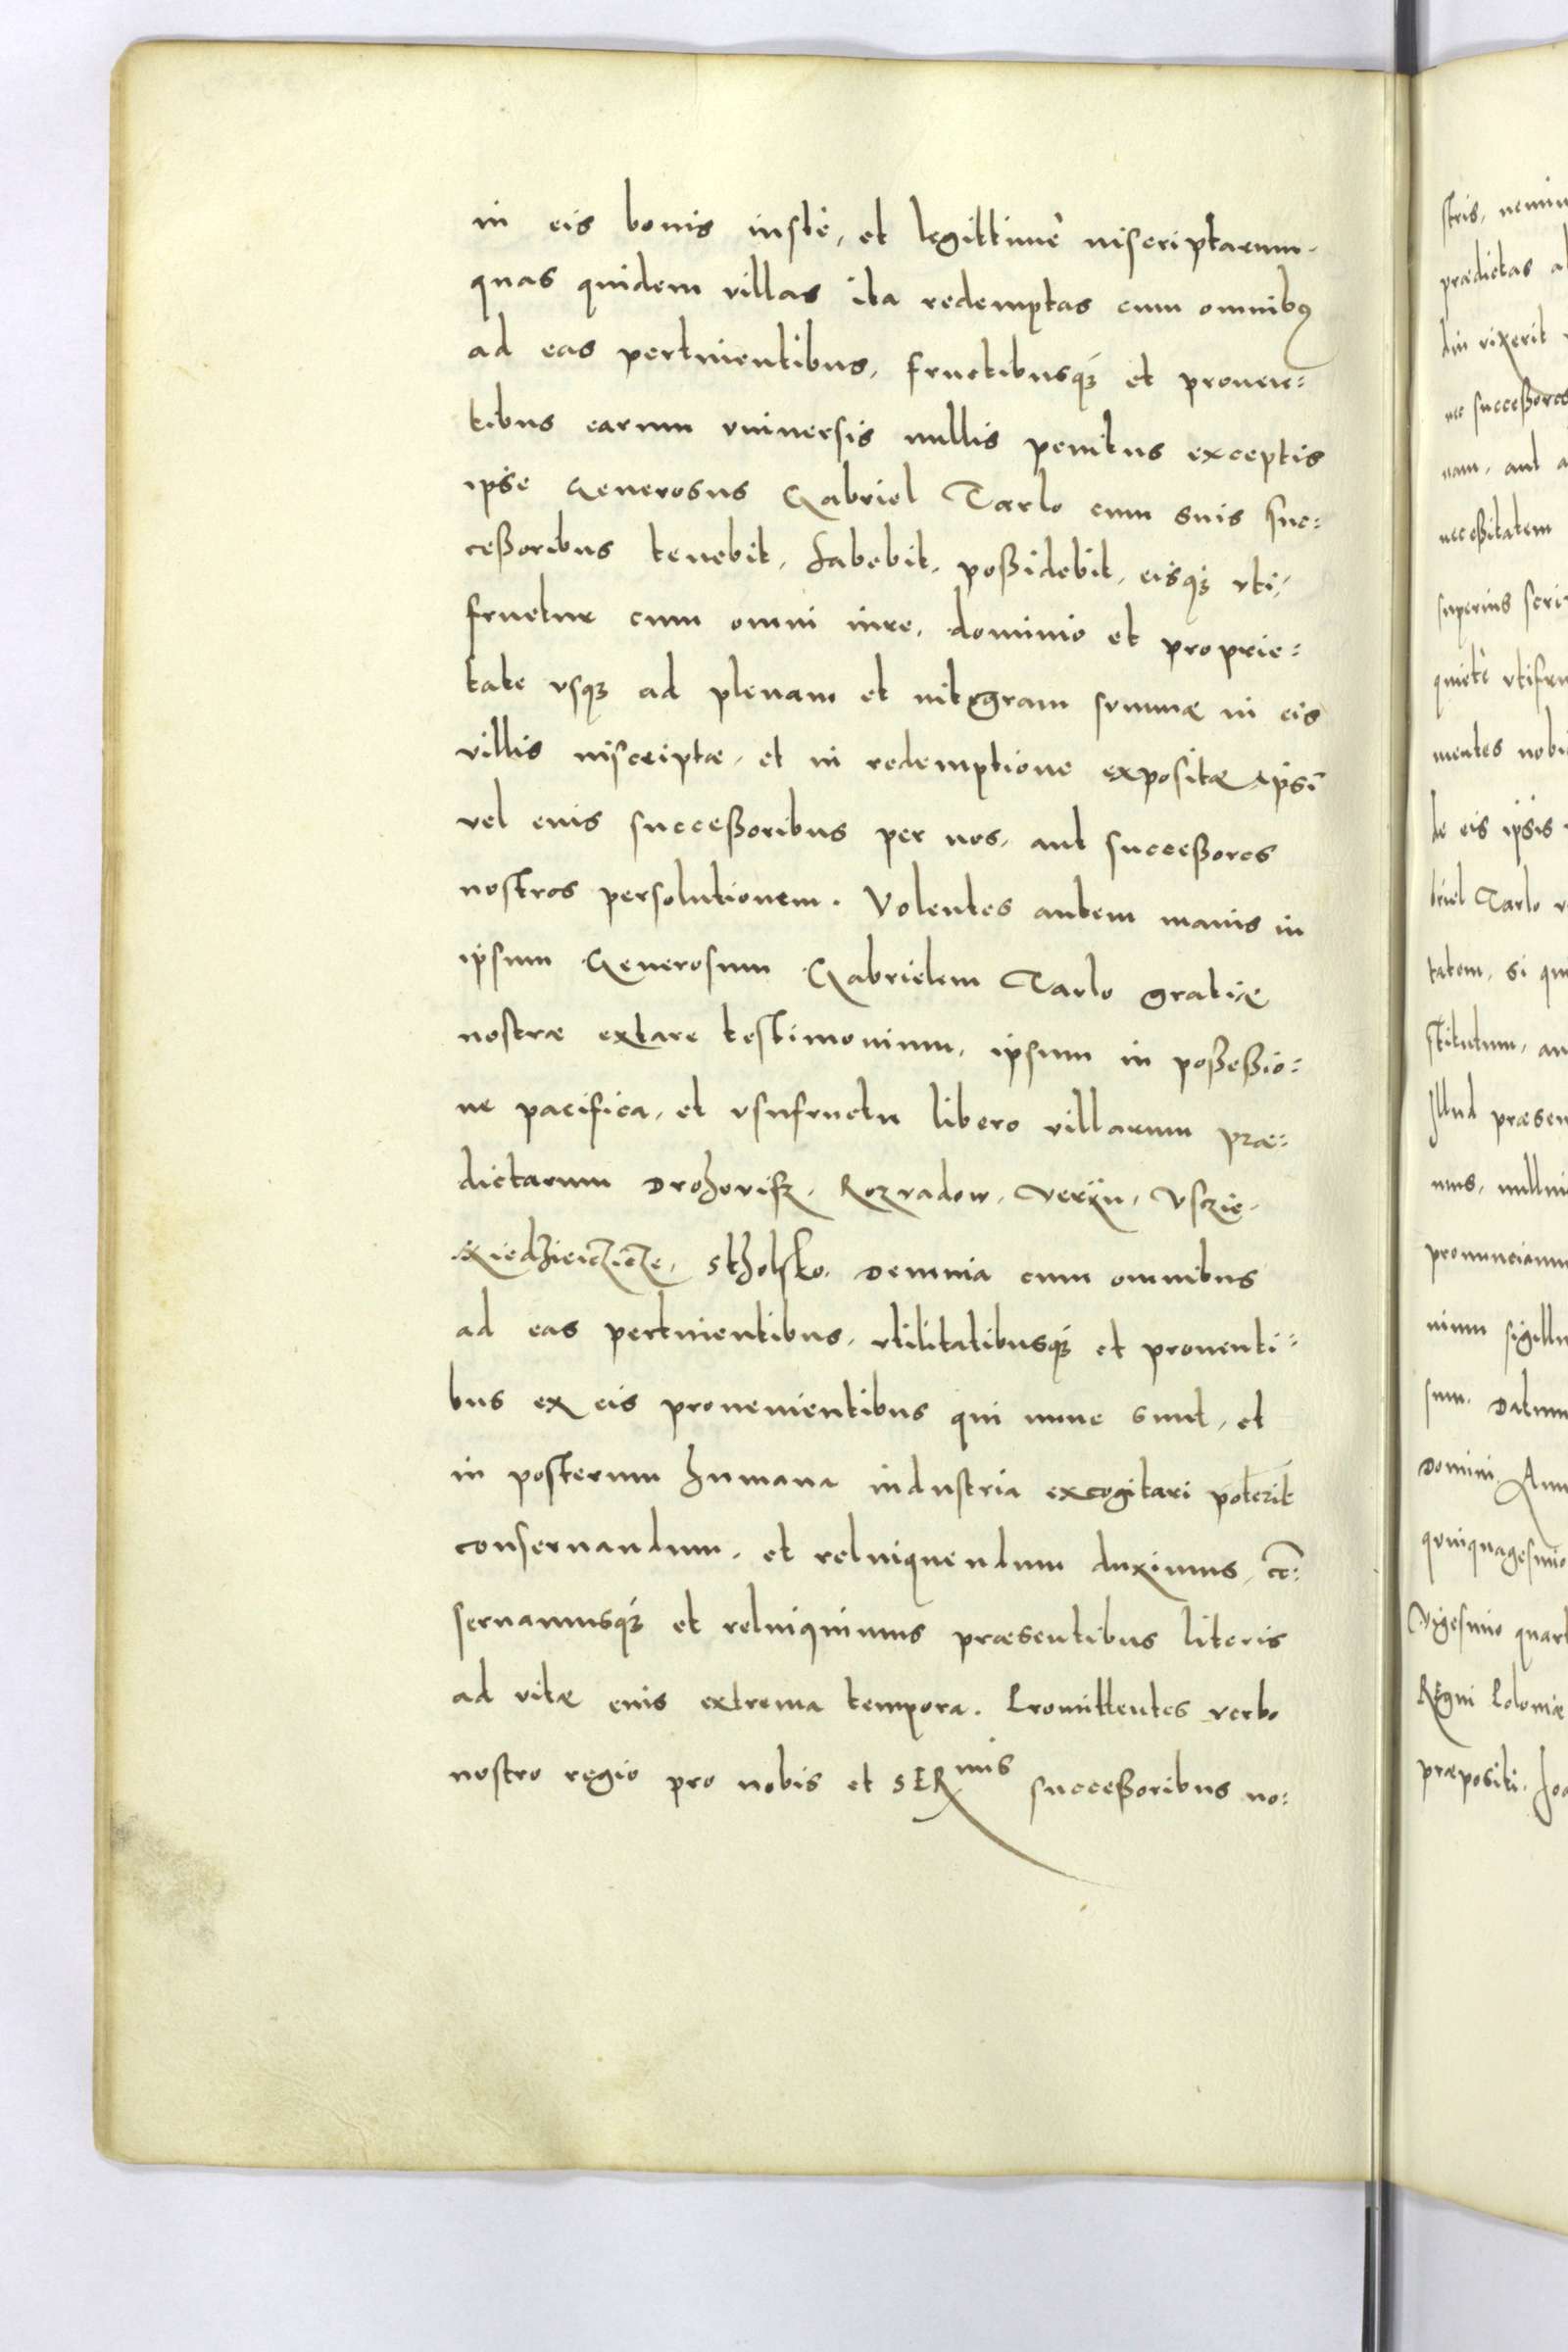 in eis bonis iustè, et legittimè inscriptarum.
quas quidem villas ita redemptas cum omnibꝰ
ad eas pertinentibus, fructibusqꝫ et prouen:
tibus earum vniuersis nullis penitus exceptis
ipse Generosus Gabriel Tarlo cum suis suc:
ceßoribus tenebit, habebit, poßidebit, eisqꝫ vti,
fruetur cum omni iure, dominio et proprie:
tate vsqꝫ ad plenam et integram summæ in eis
villis inscriptæ, et in redemptione expositæ ipsi
vel eius succeßoribus per nos, aut succeßores
nostros persolutionem. Volentes autem maius in
ipsum Generosum Gabrielem Tarlo gratiæ
nostræ extare testimonium, ipsum in poßeßio:
ne pacifica, et vsufructu libero villarum præ:
dictarum Drohoviſz, Rozradow, Veryn, Vsczie,
Kiedzieiczicze, Stholsko, Demnia cum omnibus
ad eas pertinentibus, vtilitatibusqꝫ et prouenti:
bus ex eis prouenientibus qui nunc sunt, et
in posterum humana industria excogitari poterit
conseruandum, et relinquendum duximus, cō:
seruamusqꝫ et relinquimus præsentibus literis
ad vitæ eius extrema tempora. Promittentes verbo
nostro regio pro nobis et SERmis succeßoribus no:
stris,
prædictas
diu vixerit
succeßores
nam, aut
neceßitatem
superius
quietè
mentes
de eis ipsis
briel Tarlo
tatem, si
stitutum,
Illud
mus,
pronunciamu
nium
sum. Datum
Domini
quinquagesimo
Vigesimo
Regni Poloniæ
præpositi.